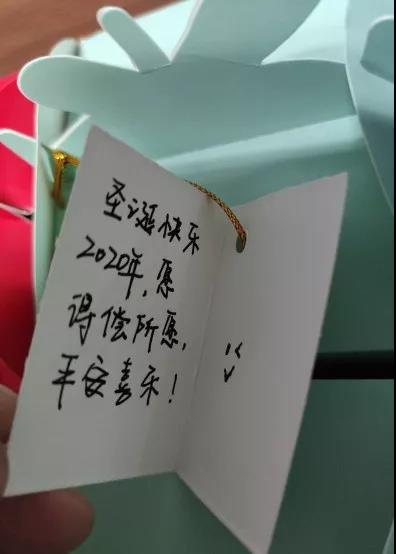 圣诞快乐
2020年，愿
得偿所愿，
平安喜乐！